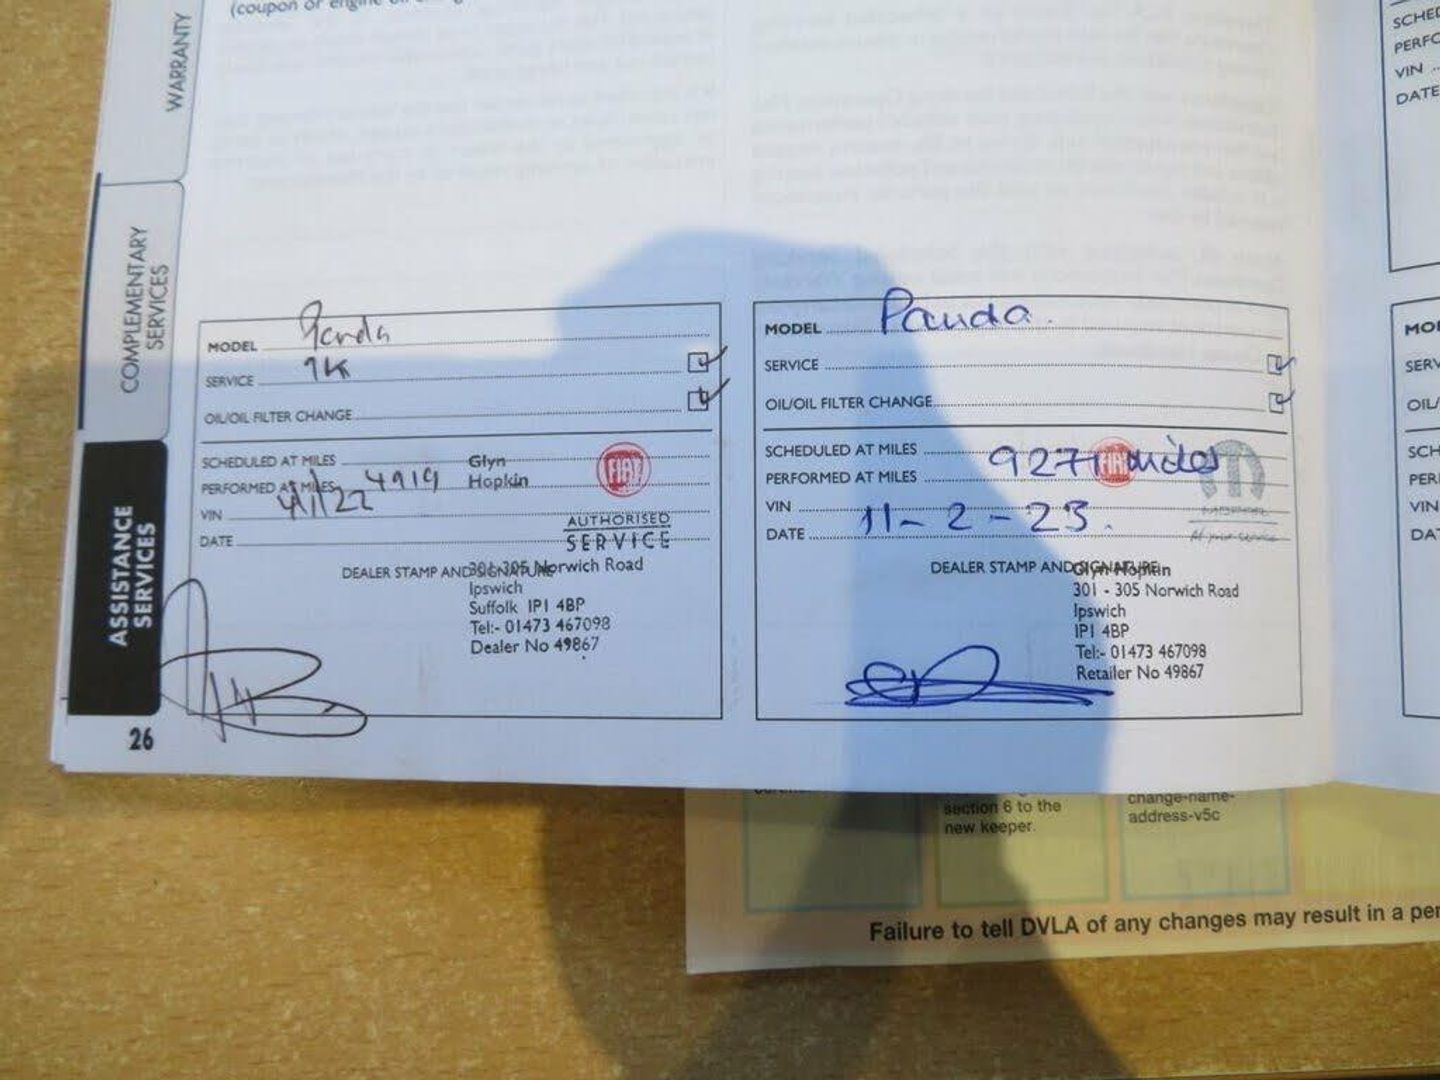 (coupon or engine oil
WARRANTY
COMPLEMENTARY
SERVICES
ASSISTANCE
SERVICES
26
MODEL Panda
SERVICE 1K
OIL/OIL FILTER CHANGE
SCHEDULED AT MILES
PERFORMED AT MILES 4919
VIN 4/1/22
DATE
Glyn
Hopkin
FIAT
AUTHORISED
SERVICE
DEALER STAMP AND SIGNATURE
301-305 Norwich Road
Ipswich
Suffolk IP1 4BP
Tel:- 01473 467098
Dealer No 49867
MODEL Panda.
SERVICE
OIL/OIL FILTER CHANGE
SCHEDULED AT MILES
PERFORMED AT MILES 9271 miles
FIAT
VIN
DATE 11-2-23.
DEALER STAMP AND SIGNATURE
Glyn Hopkin
301 - 305 Norwich Road
Ipswich
IP1 4BP
Tel:- 01473 467098
Retailer No 49867
SCHED
PERFO
VIN
DATE
MOD
SERV
OIL/
SCH
PER
VIN
DA
section 6 to the
new keeper.
change-name-
address-v5c
Failure to tell DVLA of any changes may result in a per